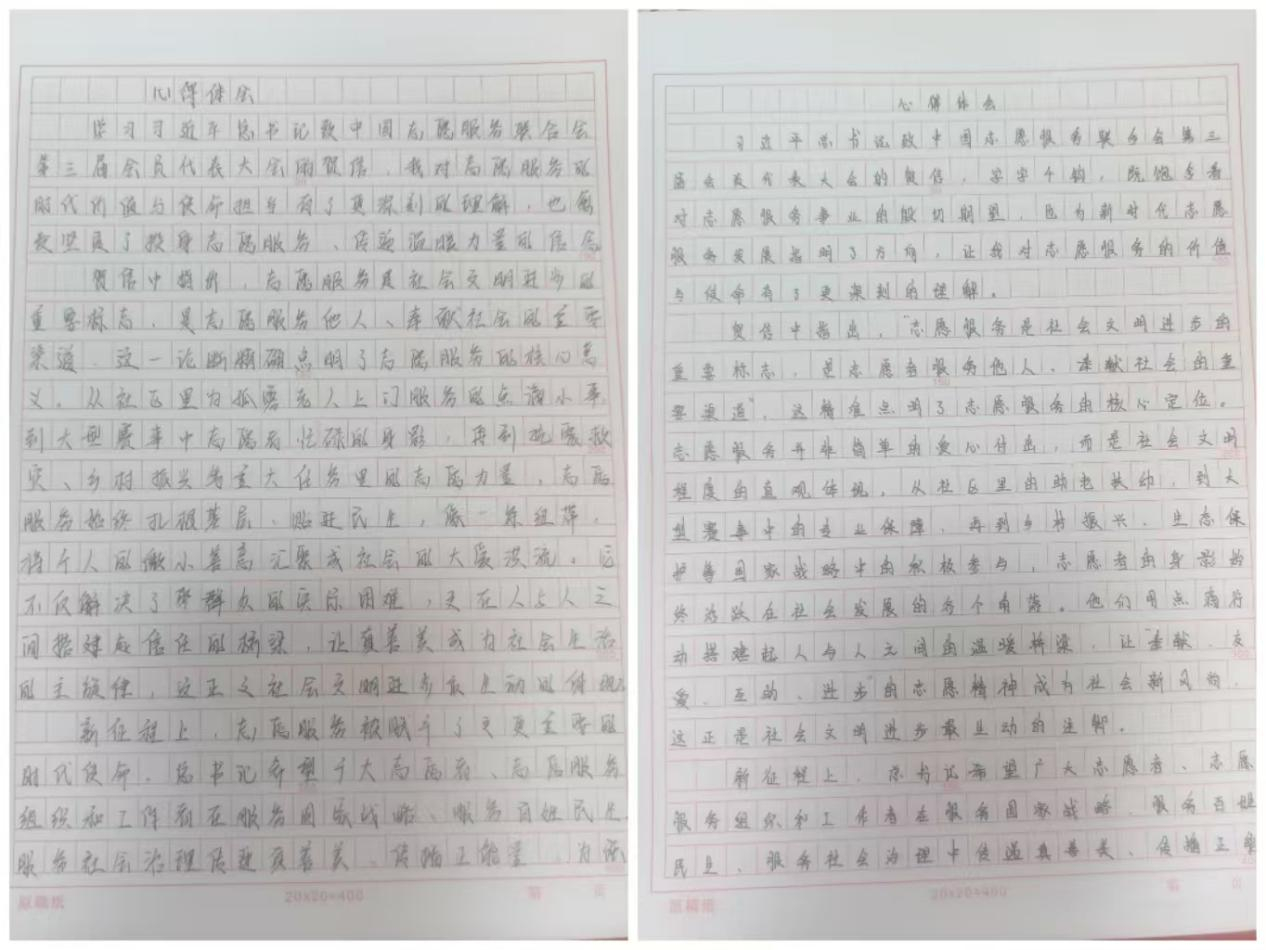 心得体会
学习习近平总书记致中国志愿服务联合会
第三届会员代表大会的贺信，我对志愿服务的
时代价值与使命担当有了更深刻的理解，也愈
发坚定了投身志愿服务、传递温暖力量的信念
贺信中指出，志愿服务是社会文明进步的
重要标志，是志愿服务他人、奉献社会的重要
渠道。这一论断精确点明了志愿服务的核心意
义。从社区里为孤寡老人上门服务的点滴小事，
到大型赛事中志愿者忙碌的身影，再到抢险救
灾、乡村振兴等重大任务里的志愿力量，志愿
服务始终扎根基层、贴近民生，像一条纽带，
将个人的微小善意汇聚成社会的大爱洪流。它
不仅解决了群众的实际困难，更在人与人之
间搭建起信任的桥梁，让真善美成为社会生活
的主旋律，这正文社会文明进步最生动的体现。
新征程上，志愿服务被赋予了更重要的
时代使命。总书记希望广大志愿者、志愿服务
组织和工作者在服务国家战略、服务百姓民生、
服务社会治理传递真善美、传播正能量，为
原稿纸 20×20=400 第 页
心得体会
习近平总书记致中国志愿服务联合会第三
届会员代表大会的贺信，字字千钧，既饱含着
对志愿服务事业的殷切期望，也为新时代志愿
服务发展指明了方向，让我对志愿服务的价值
与使命有了更深刻的理解。
贺信中指出，“志愿服务是社会文明进步的
重要标志，是志愿者服务他人、奉献社会的重
要渠道”，这精准点明了志愿服务的核心定位。
志愿服务并非简单的爱心付出，而是社会文明
程度的直观体现，从社区里的助老扶幼，到大
型赛事中的专业保障，再到乡村振兴、生态保
护等国家战略中的积极参与，志愿者的身影始
终活跃在社会发展的各个角落。他们用点滴行
动搭建起人与人之间的温暖桥梁，让“奉献、友
爱、互助、进步”的志愿精神成为社会新风尚，
这正是社会文明进步最生动的注解。
新征程上，总书记希望广大志愿者、志愿
服务组织和工作者在服务国家战略、服务百姓
民生、服务社会治理中传递真善美、传播正能
原稿纸 20×20=400 第 页